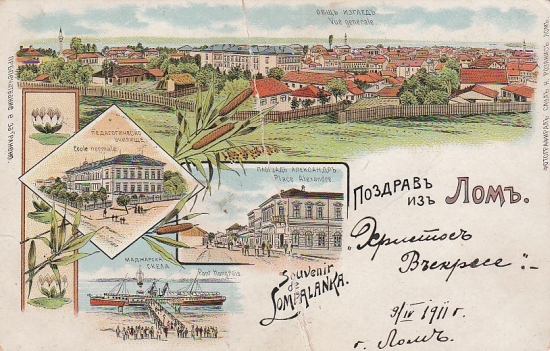 ОБЩЪ ИЗГЛЕДЪ
Vue générale
ПЕДАГОГИЧЕСКО
УЧИЛИЩЕ
École normale
ПЛОЩАДЬ АЛЕКСАНДРЪ
Place Alexandre
МАДЖАРСКА
СКЕЛА
Pont Hongrois
Souvenir
de
LOMPALANKA.
ПОЗДРАВЪ
ИЗЪ ЛОМЪ.
„Христосъ
Възкресе":-
9/IV 1911 г.
г. Ломъ.